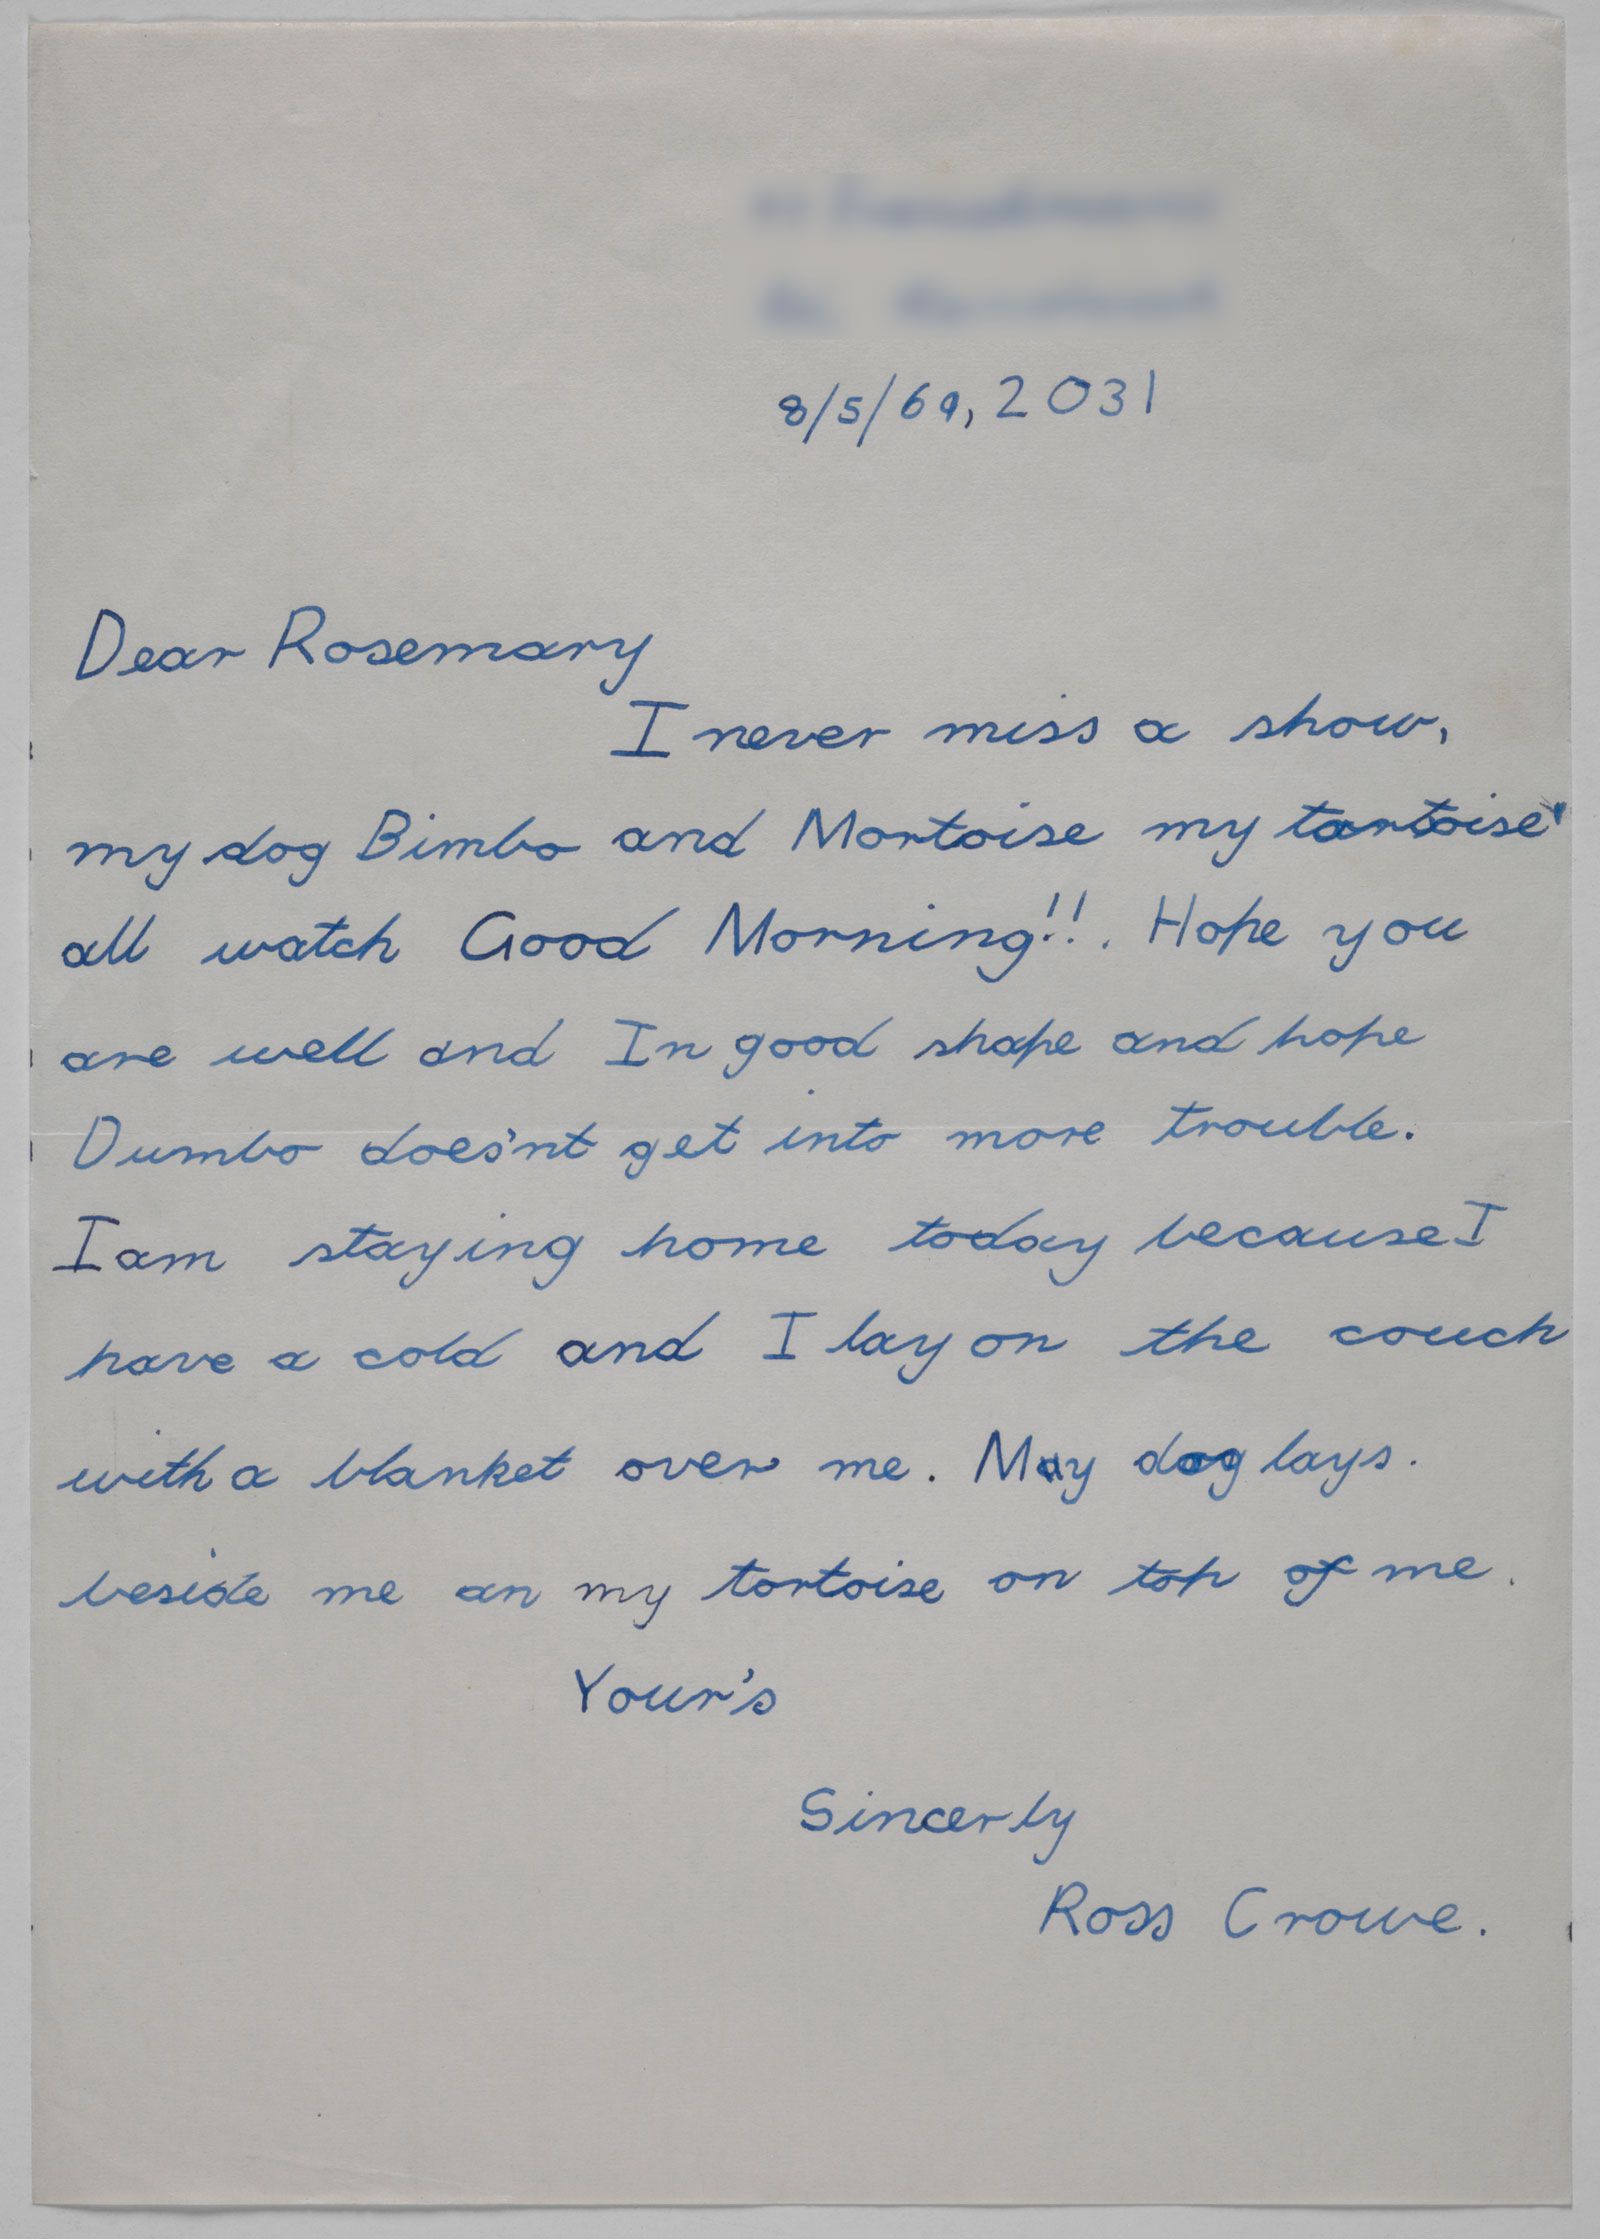 8/5/69, 2031
Dear Rosemary
I never miss a show,
my dog Bimbo and Mortoise my tortoise
all watch Good Morning!!. Hope you
are well and In good shape and hope
Dumbo does'nt get into more trouble.
I am staying home today because I
have a cold and I lay on the couch
with a blanket over me. My dog lays.
beside me an my tortoise on top of me.
Your's
Sincerly
Ross Crowe.